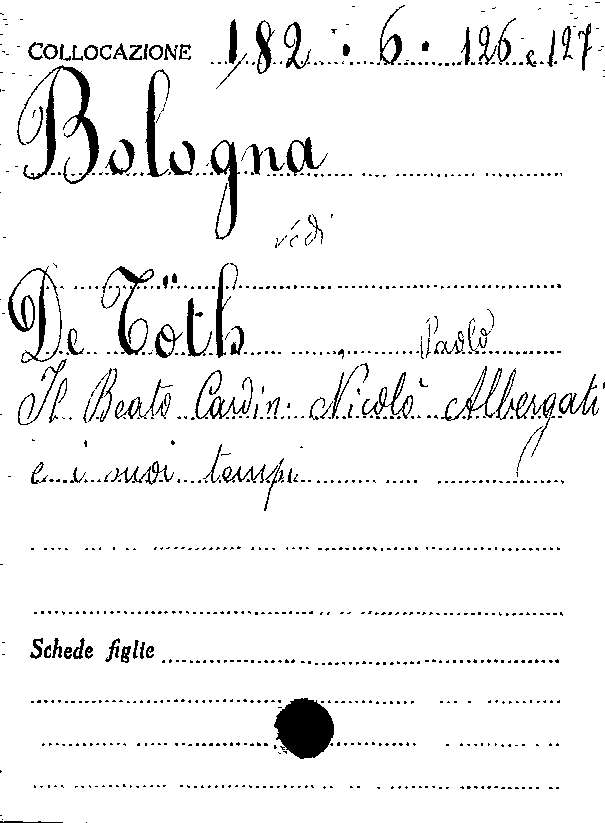 COLLOCAZIONE 182 . 6 . 126 e 127
Bologna
vedi
De Töth, Paolo
Il Beato Cardin. Nicolò Albergati
e i suoi tempi
Schede figlie